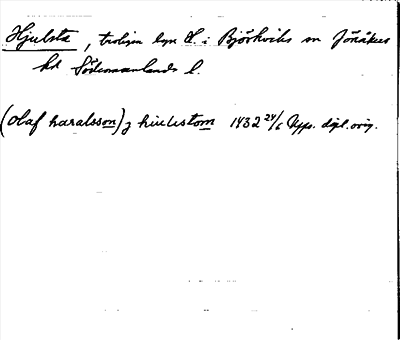 Hjulsta, troligen byn H. i Björkviks sn Jönåkers
hd Södermanlands l.
(olaf haralsson) j hiulistom 1432 24/6 Upps. dipl. orig.